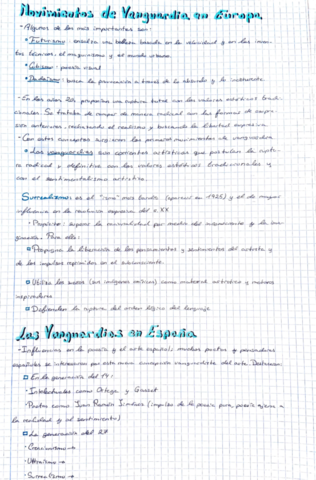 Movimientos de Vanguardia en Europa.
- Algunos de los más importantes son:
• Futurismo: exalta una belleza basada en la velocidad y en los inven-
tos técnicos, el maquinismo y el mundo urbano.
• Cubismo: poesía visual
• Dadaísmo: busca la provocación a través de lo absurdo y lo
- En los años 20, proponían una ruptura total con los valores estéticos tradi-
cionales. Se trataba de romper de manera radical con las formas de expre-
sión anteriores, rechazando el realismo y buscando la libertad expresiva.
- Con estos conceptos surgieron los primeros movimientos de vanguardia.
• Las vanguardias son corrientes artísticas que postulan la ruptu-
ra radical y definitiva con los valores estéticos tradicionales y
con el sentimentalismo artístico.
Surrealismo: es el "ismo" más tardío (apareció en 1925) y el de mayor
influencia en la revolución expresiva del s.XX
• Propósito: superar la racionalidad por medio del inconsciente y la
Para ello:
Propugna la liberación de los pensamientos y sentimientos del artista y
de los impulsos reprimidos en el subconsciente.
Utiliza los sueños (con imágenes oníricas) como material artístico y motivos
inspiradores
Defienden la ruptura del orden lógico del lenguaje
Las Vanguardias en España
- Influencias en la poesía y el arte español, muchos poetas y pensadores
españoles se interesaron por esta nueva concepción vanguardista del arte. Destacan:
En la generación del 14:
• Intelectuales como Ortega y Gasset
• Poetas como Juan Ramón Jiménez (impulso de la poesía pura, poesía ajena a
la realidad y al sentimiento)
La generación del 27
• Creacionismo →
• Ultraísmo →
• Surrealismo →